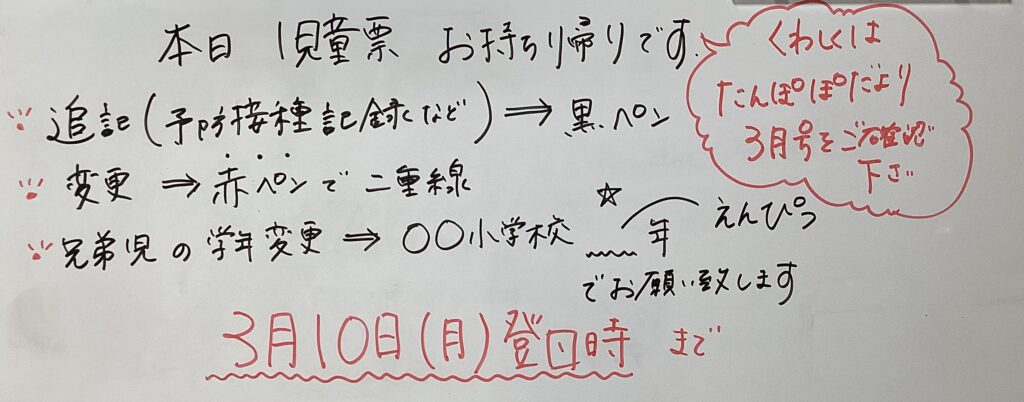 本日 児童票 お持ち帰りです
くわしくは
たんぽぽだより
3月号をご確認
下さい
追記(予防接種記録など)⇒黒ペン
変更 ⇒ 赤ペンで二重線
兄弟児の学年変更 ⇒ 〇〇小学校 年 ☆えんぴつ
でお願い致します
3月10日(月)登園時 まで